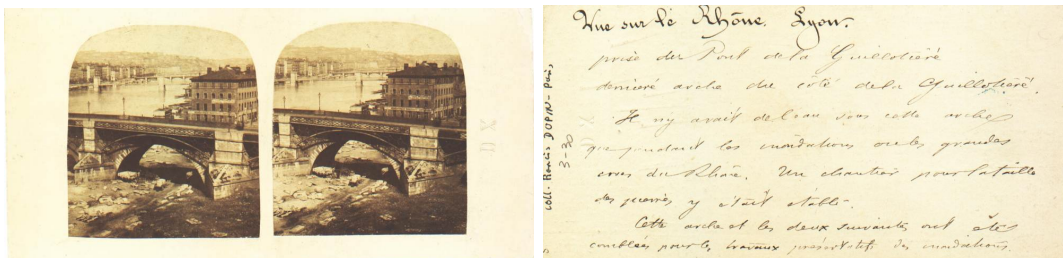 Vue sur le Rhône. Lyon.
prise du Pont de la Guillotière
dernière arche du côté de la Guillotière.
Il n'y avait de l'eau sous cette arche
que pendant les inondations ou les grandes
crues du Rhône. Un chantier pour la taille
des pierres y était établi.
Cette arche et les deux suivantes ont été
comblées pour les travaux préservatifs des inondations.
coll. DOPIN - Paris
3-30